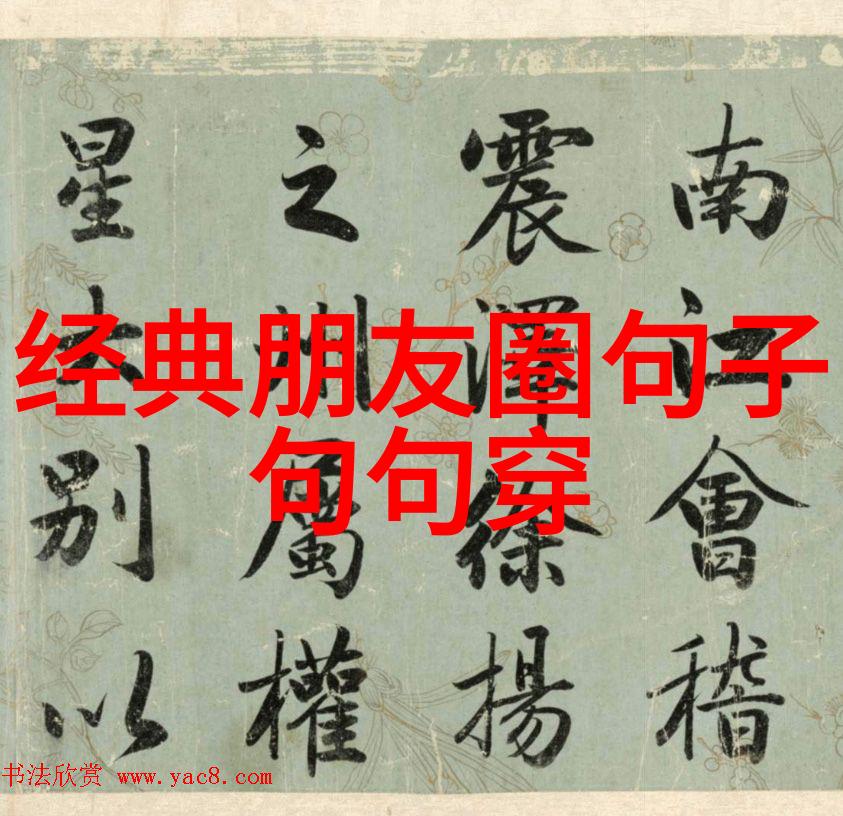 南江會稽
震澤徐揚
之州屬權
星別以
经典朋友圈句子
句句穿
书法欣赏 www.yac8.com